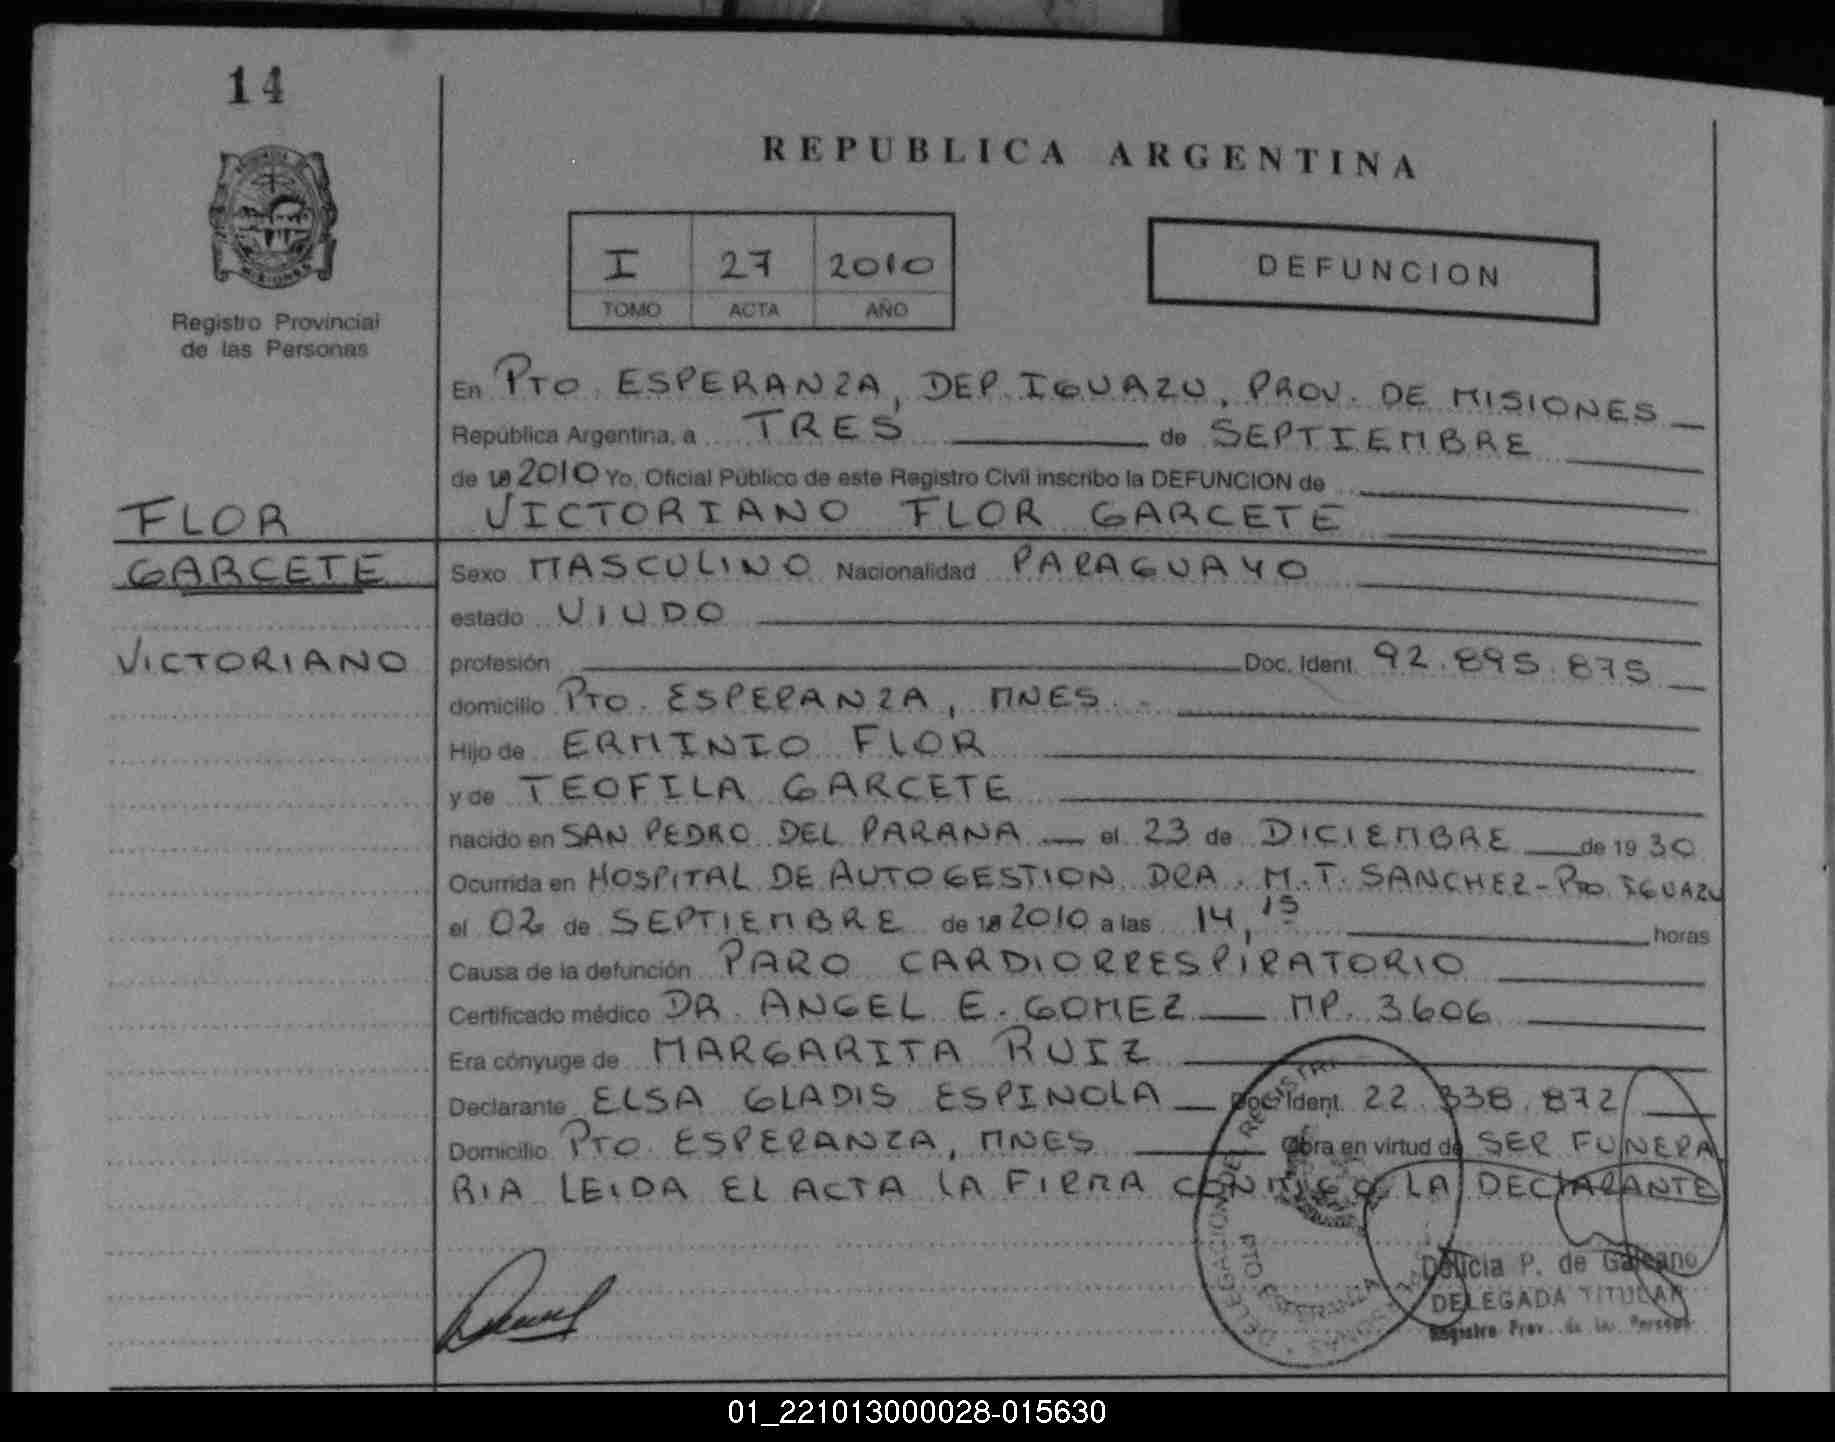 14
REPUBLICA ARGENTINA
MISIONES
Registro Provincial
de las Personas
I 27 2010
TOMO ACTA AÑO
DEFUNCION
En PTO. ESPERANZA, DEP. IGUAZU, PROV. DE MISIONES
República Argentina, a TRES de SEPTIEMBRE
de 2010 Yo, Oficial Público de este Registro Civil inscribo la DEFUNCION de
VICTORIANO FLOR GARCETE
FLOR
GARCETE
VICTORIANO
Sexo MASCULINO Nacionalidad PARAGUAYO
estado VIUDO
profesión Doc. Ident. 92.895.875
domicilio PTO. ESPERANZA, MNES.-
Hijo de ERMINIO FLOR
y de TEOFILA GARCETE
nacido en SAN PEDRO DEL PARANA el 23 de DICIEMBRE de 1930
Ocurrida en HOSPITAL DE AUTOGESTION DRA. M.T. SANCHEZ - PTO. IGUAZU
el 02 de SEPTIEMBRE de 2010 a las 14,15 horas
Causa de la defunción PARO CARDIORRESPIRATORIO
Certificado médico DR. ANGEL E. GOMEZ MP. 3606
Era cónyuge de MARGARITA RUIZ
Declarante ELSA GLADIS ESPINOLA Doc. Ident. 22.338.872
Domicilio PTO. ESPERANZA, MNES Obra en virtud de SER FUNERA
RIA LEIDA EL ACTA LA FIRMA CONMIGO LA DECLARANTE
DELEGACION DEL REGISTRO
PTO. ESPERANZA
Delicia P. de Galeano
DELEGADA TITULAR
Registro Prov. de las Personas
01_221013000028-015630